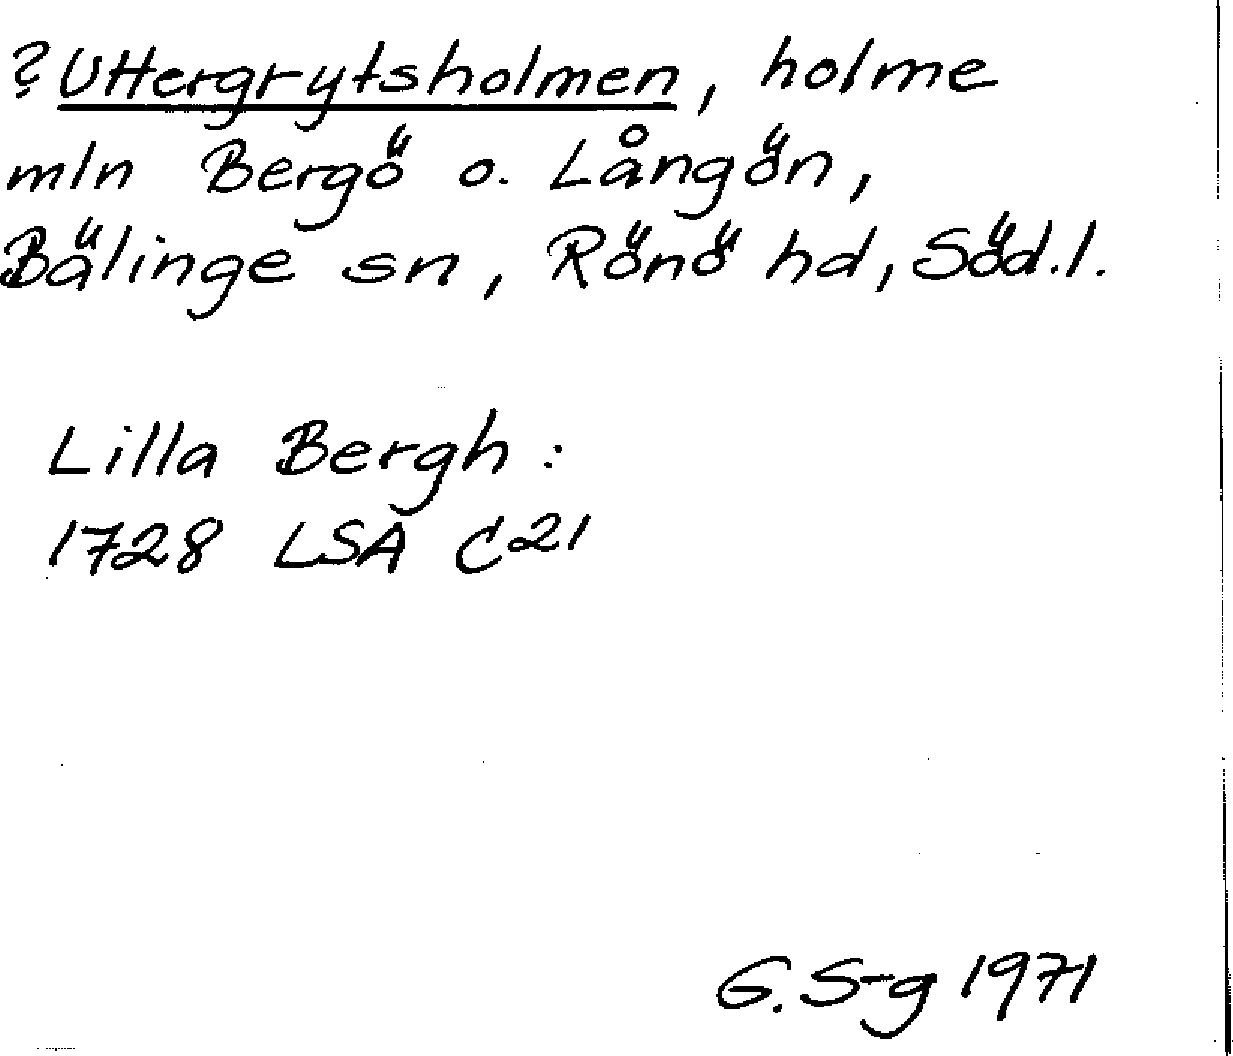 ? Uttergrytsholmen, holme
mln Bergö o. Långön,
Bälinge sn, Rönö hd, Söd.l.
Lilla Bergh :
1728 LSA C21
G. S-g 1971